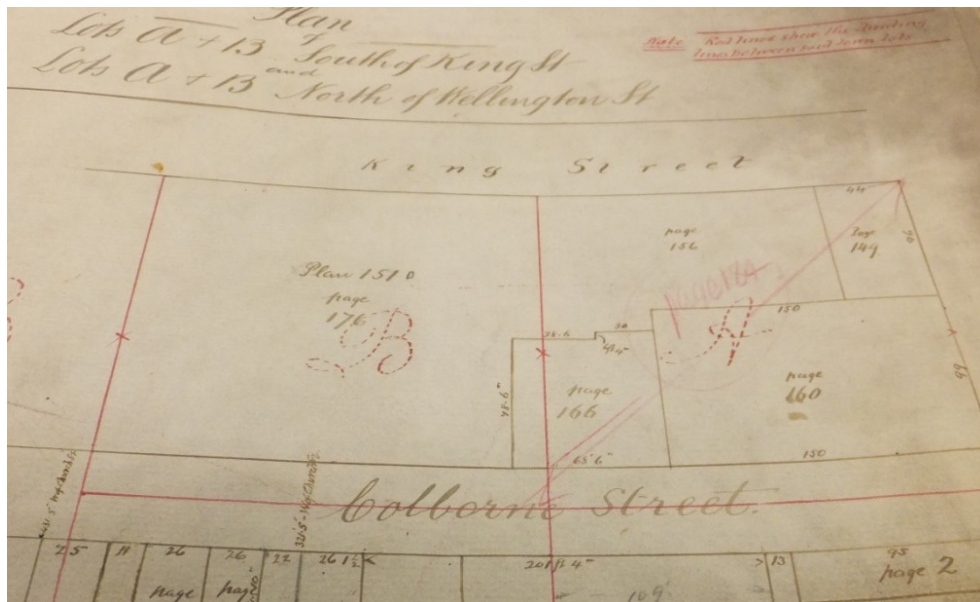 Plan
of
Lots A + B South of King St
and
Lots A + B North of Wellington St
Note Red lines show the
lines between said town lots
King Street
44
page
156
Page
149
90
Plan 151 D
page
176
B
page 164
A
150
38.6
30
48.6"
page
166
page
160
99
65'6"
150
Colborne Street.
25
11
26
26
22
26 1/2
201 ft 4"
13
95
page
page
page 2
169